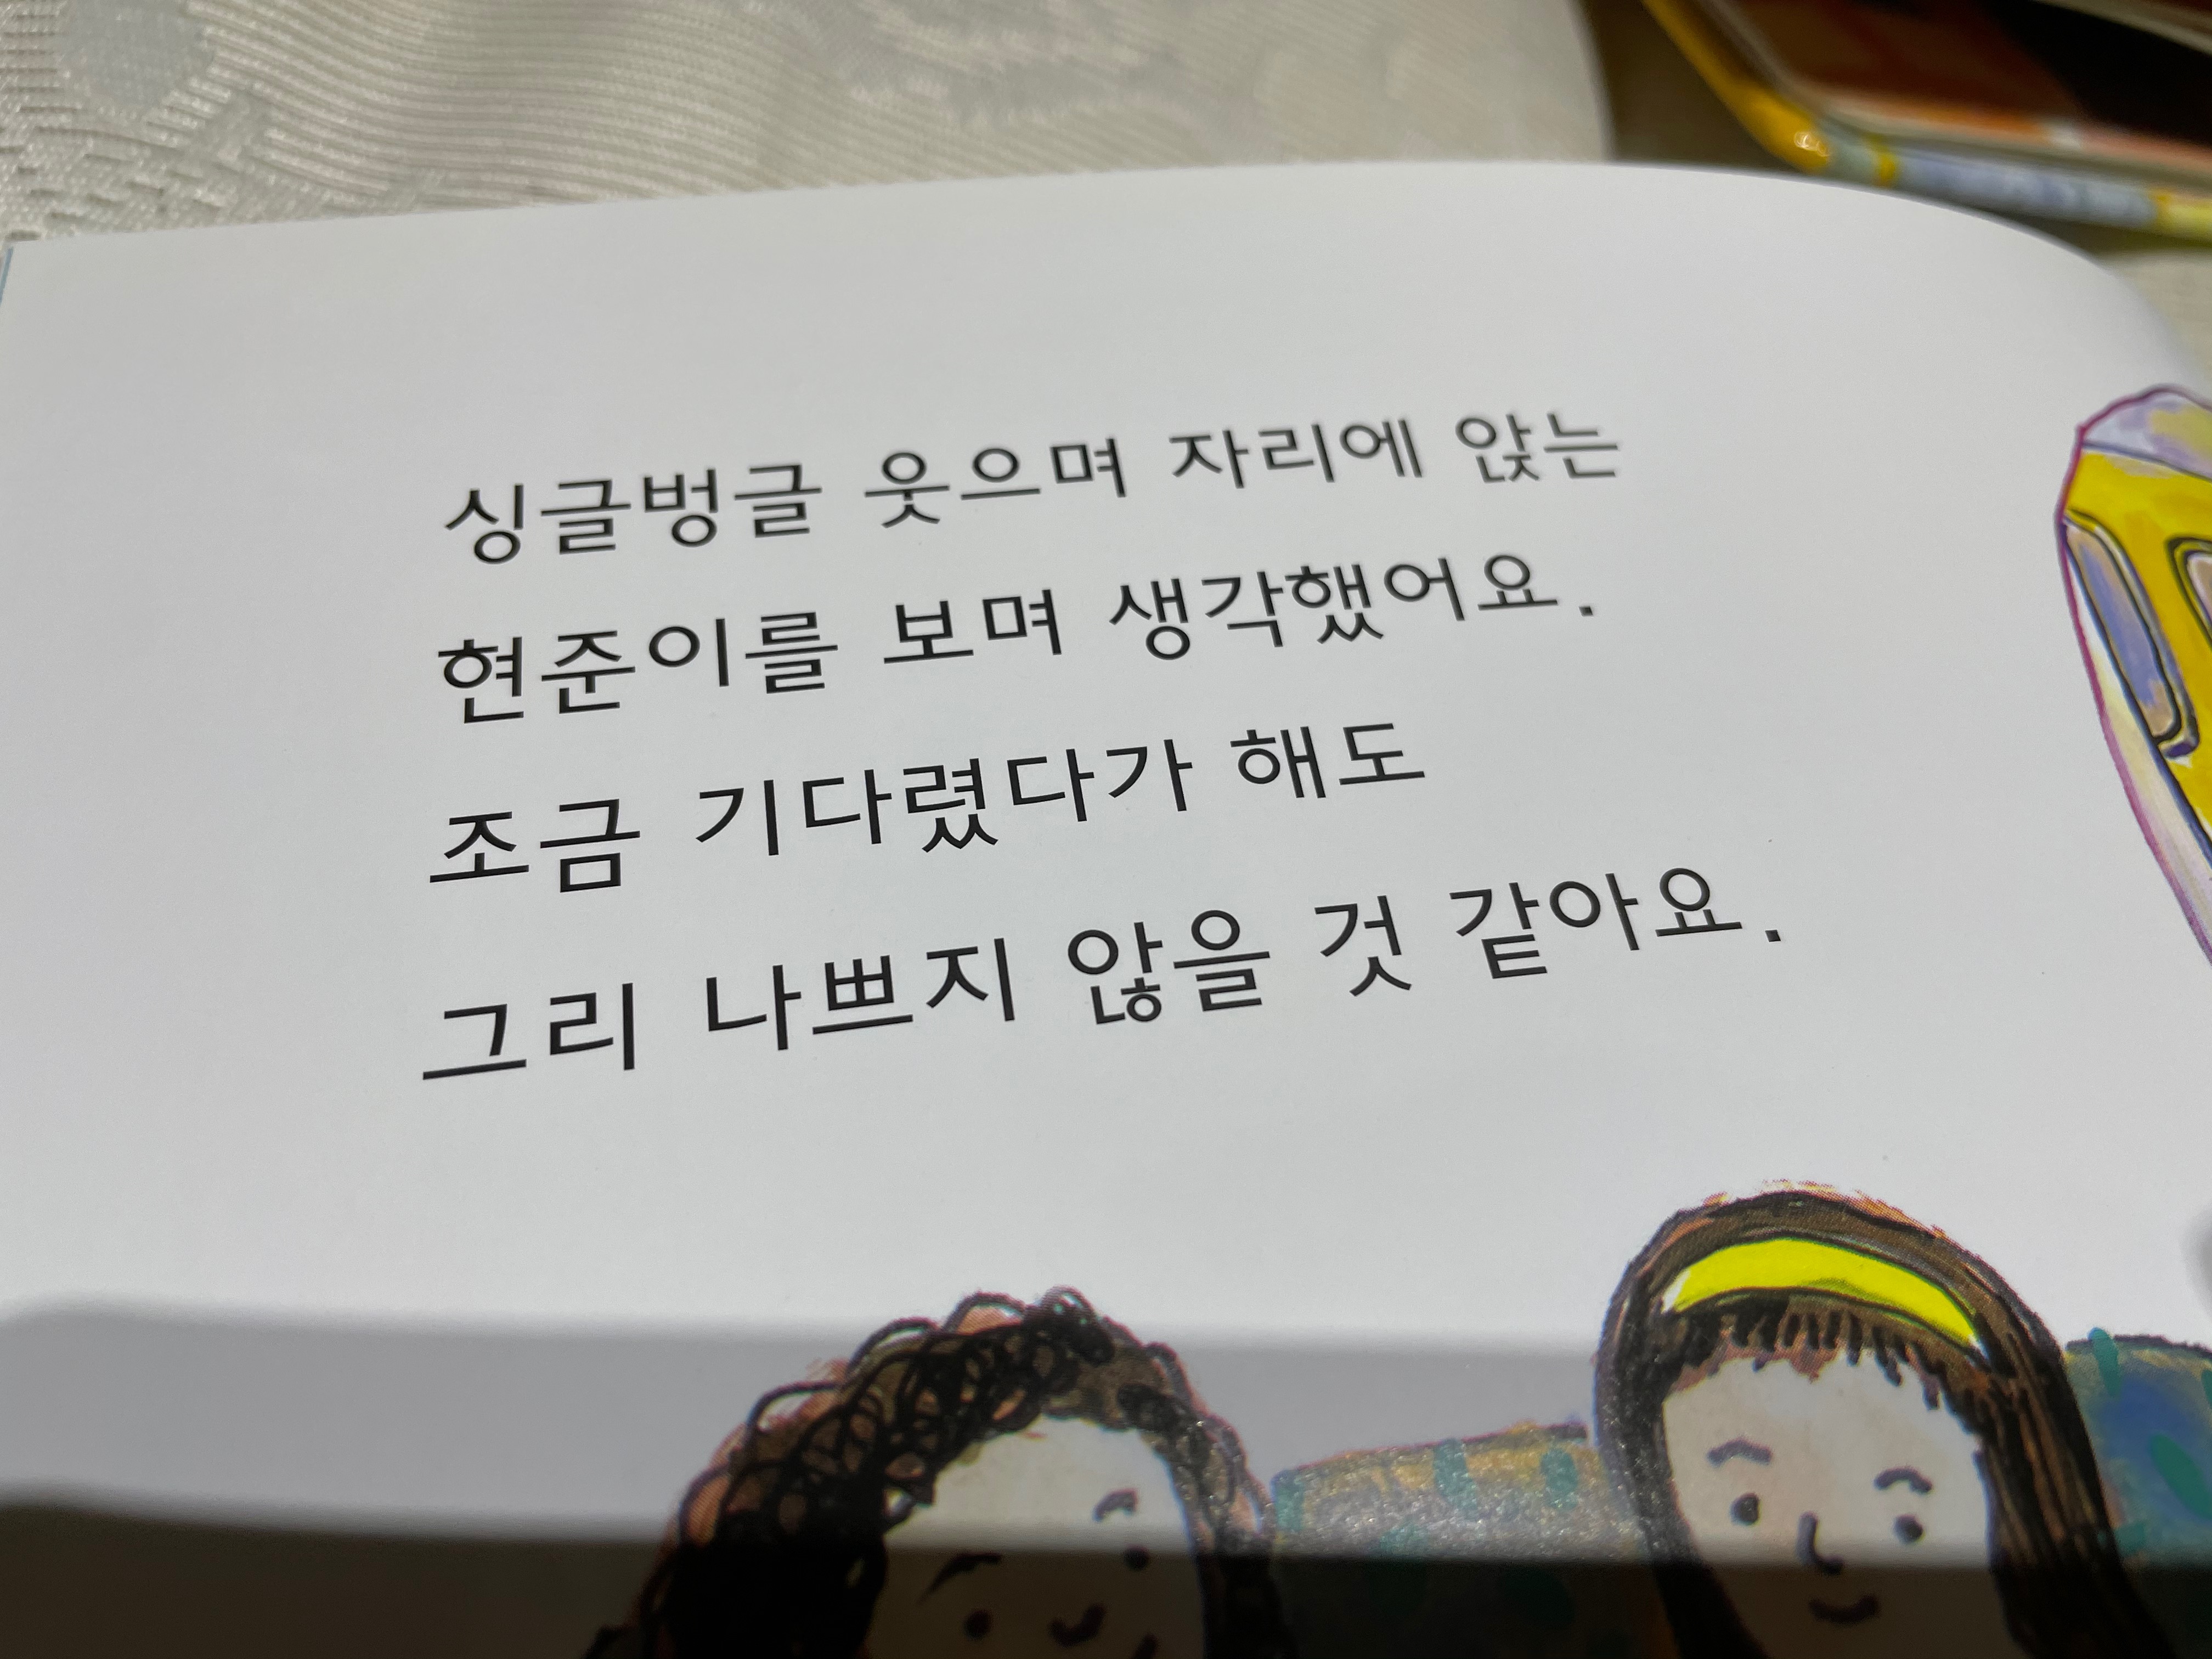 싱글벙글 웃으며 자리에 앉는
현준이를 보며 생각했어요.
조금 기다렸다가 해도
그리 나쁘지 않을 것 같아요.